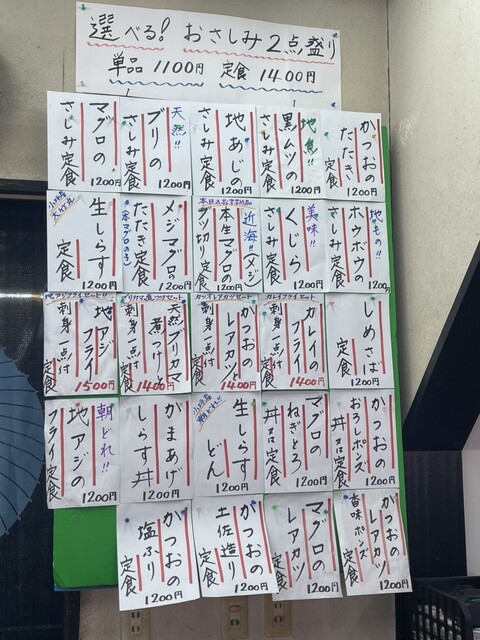 選べる! おさしみ2点盛り
単品 1100円 定食 1400円
かつおの
たたき
定食
1200円
地魚!!
黒ムツの
さしみ定食
1200円
地あじの
さしみ定食
1200円
天然!!
ブリの
さしみ定食
1200円
マグロの
さしみ定食
1200円
地もの!!
ホウボウの
さしみ定食
1200円
美味!!
くじら
さしみ定食
1200円
本日のおすすめ品
近海!!メジ
本生マグロの
ブツ切り定食
1200円
メジマグロの
(本マグロの子)
たたき定食
1200円
生しらす
定食
1200円
しめさば
定食
1200円
カレイフライセット
カレイの
フライ
刺身一点付
定食
1400円
カツオレアカツセット
かつおの
レアカツ
刺身一点付
定食
1400円
ブリカマ煮つけセット
天然ブリカマ
煮つけ
刺身一点付
定食
1400円
地アジフライセット!!
地アジ
フライ
刺身一点付
定食
1500円
かつおの
おろしポンズ
丼又は定食
1200円
マグロの
ねぎとろ
丼又は定食
1200円
生しらす
どん
1200円
かまあげ
しらす丼
1200円
朝どれ!!
地アジの
フライ定食
1200円
かつおの
レアカツ
香味ポンズ
定食
1200円
マグロの
レアカツ
定食
1200円
かつおの
土佐造り
定食
1200円
かつおの
塩ふり
定食
1200円